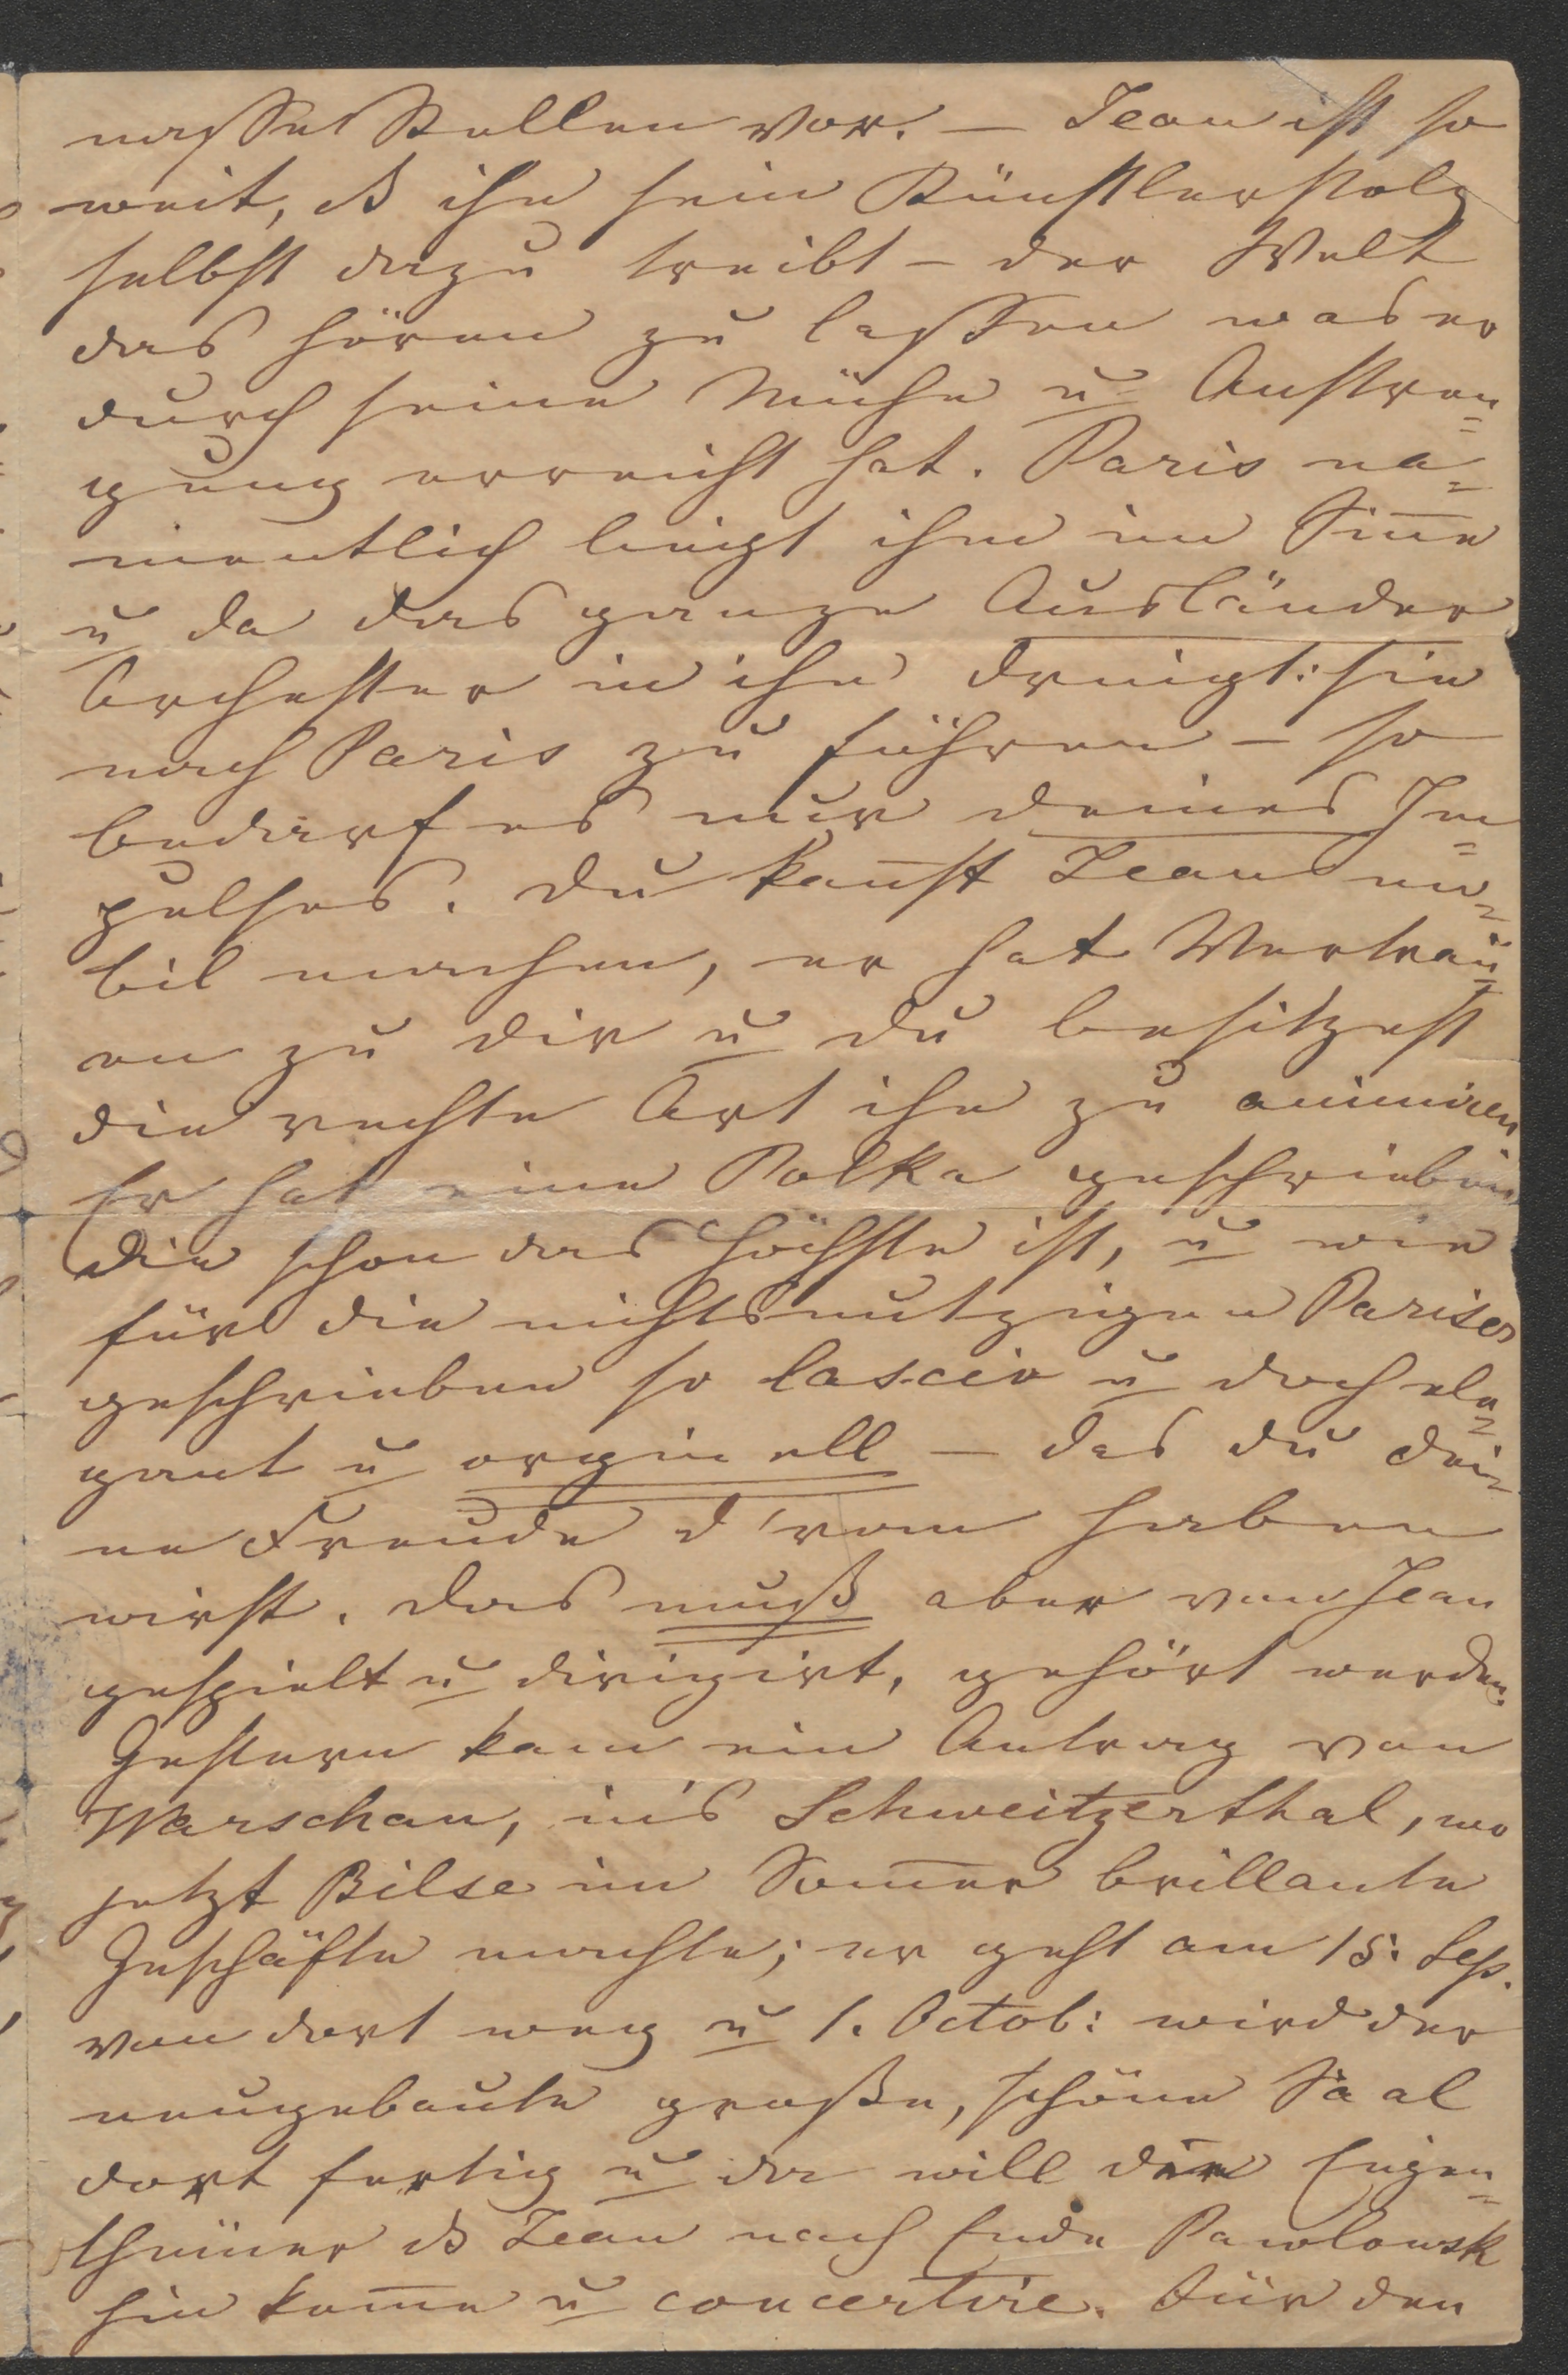 nasse Stellen vor. — Jean ist so
weit, dß ihn sein Künstlerstolz
selbst dazu treibt — der Welt
das hören zu lassen was er
durch seine Mühe u Anstren=
gung erreicht hat. Paris na=
mentlich liegt ihm im Sinne
u da das ganze Ausländer
Orchester in ihn dringt: sie
nach Paris zu führen — so
bedarf es nur deines Im=
pulses. Du kannst Jean mo=
bil machen, er hat Vertrau=
en zu dir u du besitzest
die rechte Art ihn zu animiren
Er hat eine Polka geschrieben
die schon das Höchste ist, u wie
für die nichtsnutzigen Pariser
geschrieben so lasciv u doch ele=
gant u orginell — das du dei=
ne Freude d'ran haben
wirst. Das muß aber von Jean
gespielt u dirigirt, gehört werden.
Gestern kam ein Antrag von
Warschau, in's Schweitzerthal, wo
jetzt Bilse im Sommer brillante
Geschäfte machte; er geht am 15. Sep.
von dort weg u 1. Octob: wird der
neugebaute große, schöne Saal
dort fertig u da will der Eigen=
thümer dß Jean nach Ende Pawlowsk
hin komme u concertire. Für den